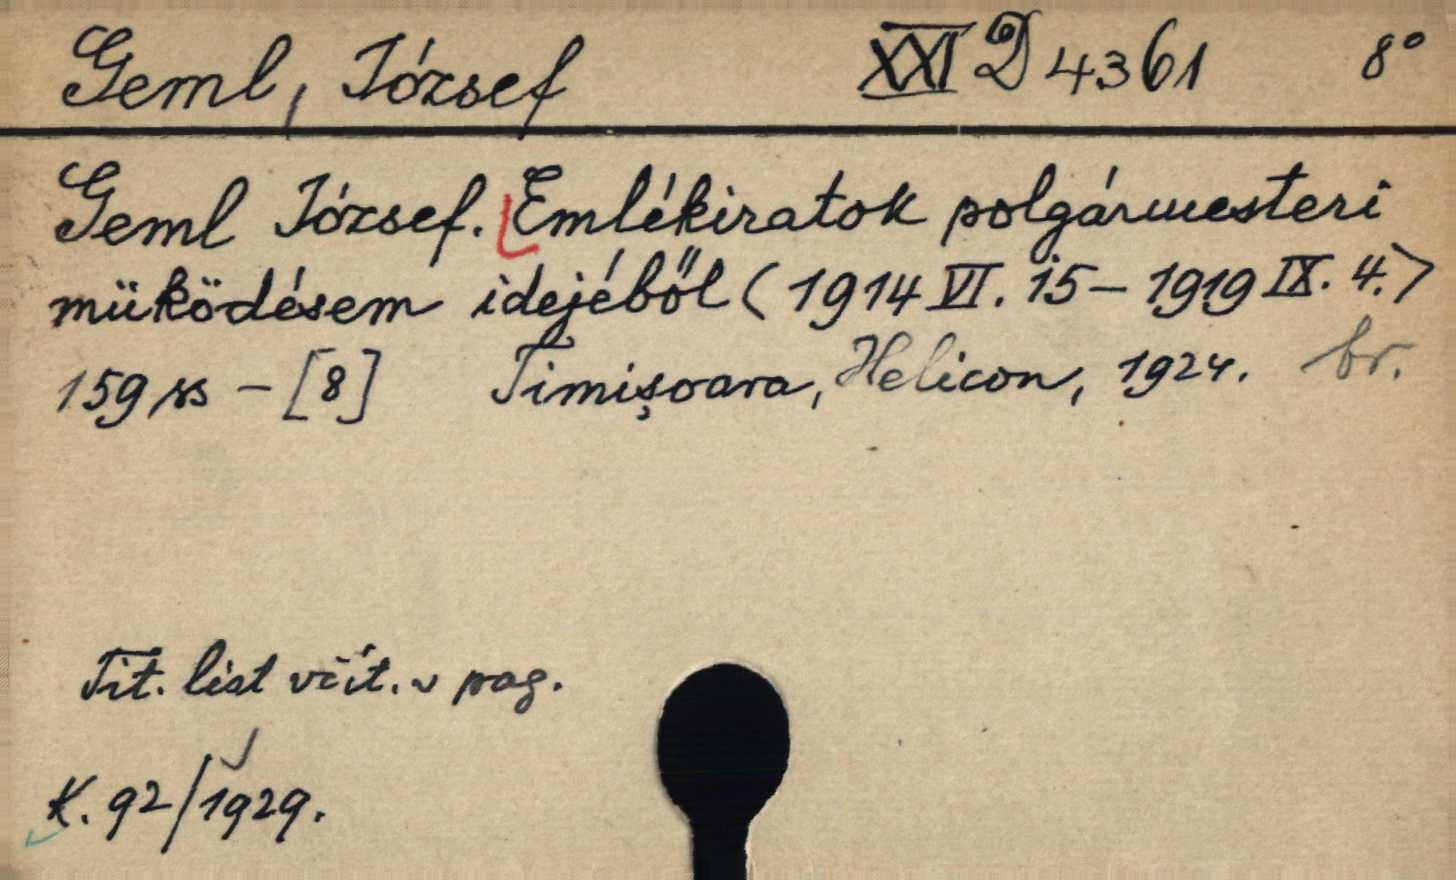 Geml, József XXI D 4361 8°
Geml József. Emlékiratok polgármesteri
müködésem idejéből (1914 VI. 15 – 1919 IX. 4.)
159 ss – [8] Timişoara, Helicon, 1924. br.
Tit. list včít. v pag.
K. 92/1929.